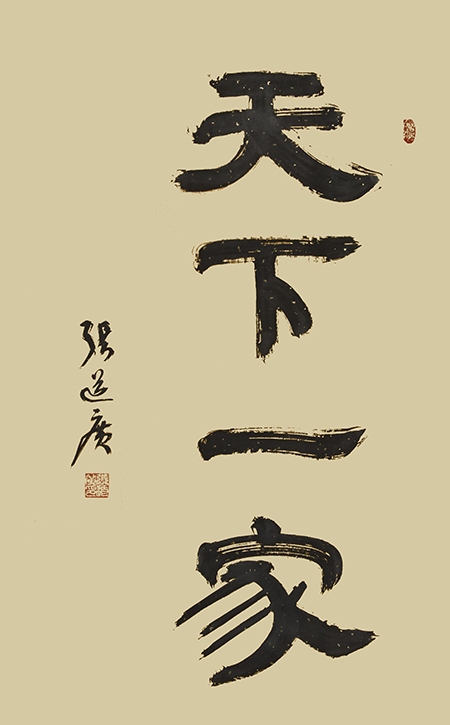 天下一家
張道廣